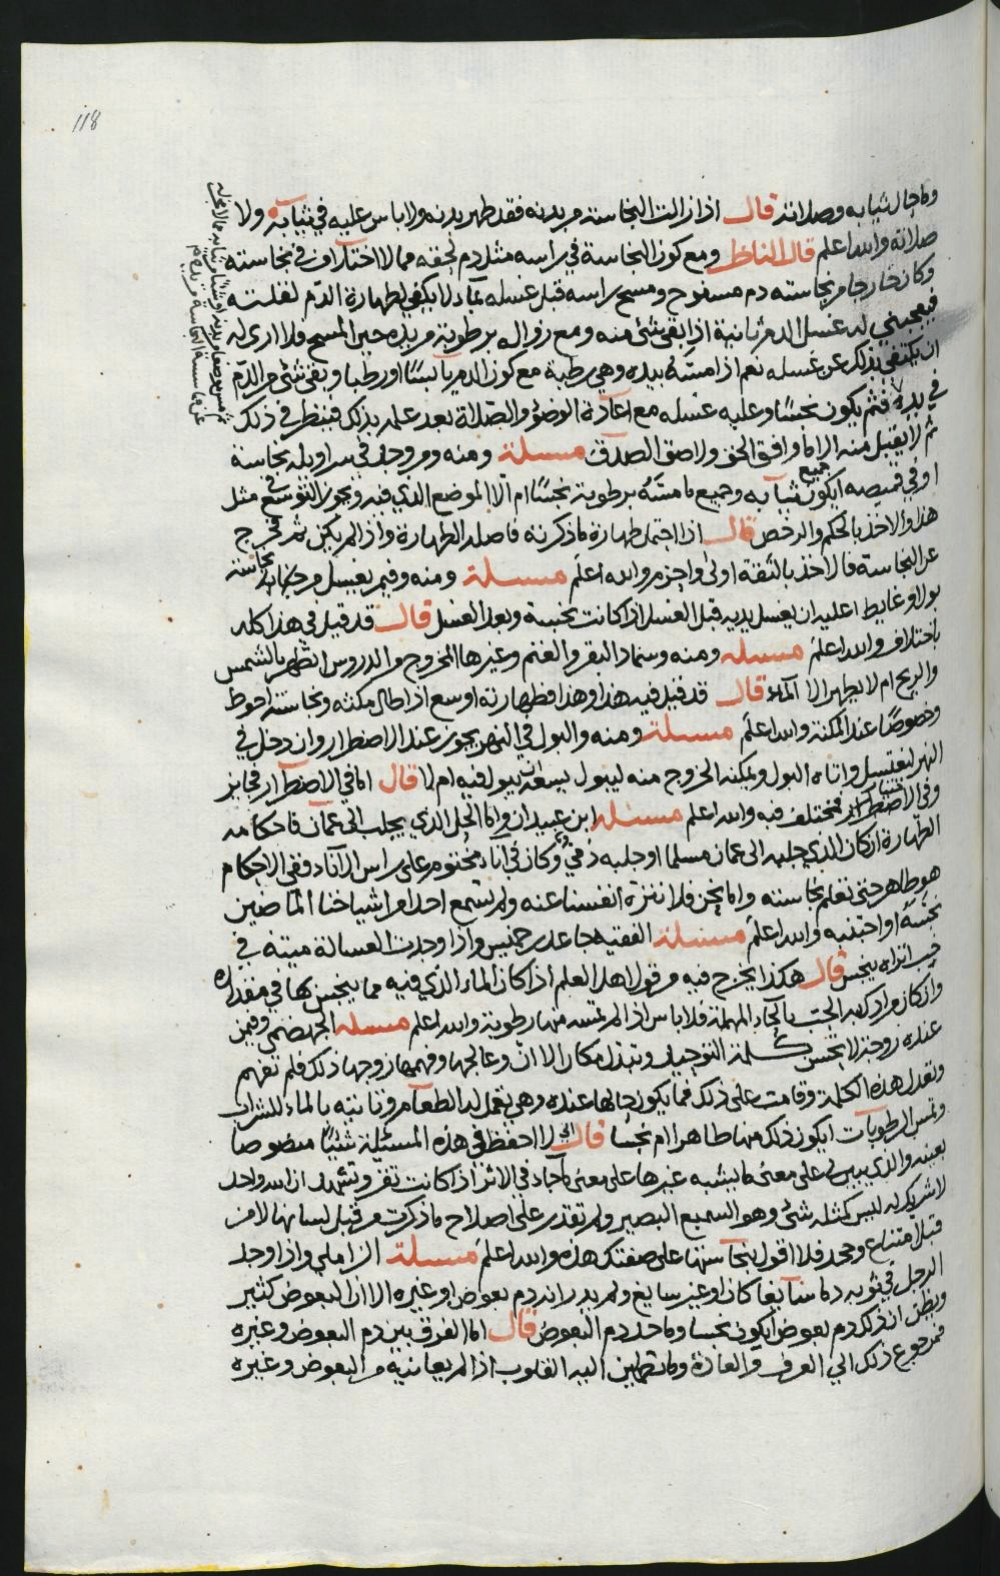 118
وما حال ثيابه وصلاته قال اذا زالت النجاسة من بدنه فقد طهر بدنه ولا باس عليه في ثيابه ولا
صلاته والله اعلم قال الناظر ومع كون النجاسة في راسه مثل دم لحقه مما لا اختلاف في نجاسته
وكان خارجا من نجاسته دم مسفوح ومسح راسه قبل غسله بماء لا يكفي لطهارة الدم لغلبته
فيعجبني له غسل الدم ثانية اذا بقي شئ منه ومع زواله برطوبة من يده حين المسح فلا ارى له
ان يكتفي بذلك عن غسله نعم اذا مسته بيده وهي رطبة مع كون الدم يابسًا او رطبا وبقي شئ من الدم
في يده فثم يكون نجسًا وعليه غسله مع اعادة الوضؤ والصلاة بعد علمه بذلك فينظر في ذلك
ثم لا يقبل منه الا ما وافق الحق ولاصق الصدق مسئلة ومنه ومن وجد في سراويله نجاسة
او في قميصه ايكون جميع ثيابه وجميع ما مسته برطوبة نجسًا ام الا الموضع الذي فيه ويجوز التوسع في مثل
هذا والاخذ بالحكم والرخص قال اذا احتمل طهارة ما ذكرته فاصله الطهارة واذا لم يكن ثم مخرج
عن النجاسة فالاخذ بالثقة اولى واحزم والله اعلم مسئلة ومنه وفيمن يغسل من جنابة نجاسة
بول او غايط اعليه ان يغسل يديه قبل الغسل اذا كانت نجسة وبعد الغسل قال قد قيل في هذا كله
باختلاف والله اعلم مسئلة ومنه وسماد البقر والغنم وغيرها المخروج من الدروس ايطهر بالشمس
والريح ام لا يطهر الا الماء قال قد قيل فيه هذا وهذا فطهارته اوسع اذا طال مكثه ونجاسته احوط
وخصوصًا عند المكنة والله اعلم مسئلة ومنه والبول في النهر يجوز عند الاضطرار وان دخل في
النهر ليغتسل واتاه البول ويمكنه الخروج منه ليبول يسعه ان يبول فيه ام لا قال اما في الاضطرار فجايز
وفي الاختيار فمختلف فيه والله اعلم مسئلة ابن عبيدان واما الخل الذي يجلب الى عمان فاحكامه
الطهارة ان كان الذي جلبه الى عمان مسلما او جلبه ذمي وكان في اناء مختوم على راس الاناء ففي الاحكام
هو طاهر حتى تعلم نجاسته واما نحن فلا ننزه انفسنا عنه ولم نسمع احدا من اشياخنا الماضين
نجسه او اجتنبه والله اعلم مسئلة الفقيه جاعد بن خميس واذا وجدت الغسالة ميتة في
جب اتراه ينجس قال هكذا يخرج فيه من قول اهل العلم اذا كان الماء الذي فيه مما ينجس بها في مقداره
وان كان مرادك به الحب بالحاء المهملة فلا باس اذا لم تمسه منها رطوبة والله اعلم مسئلة الجهضمي وفيمن
عنده زوجة لا تحسن كلمة التوحيد وتبدل مكان الا ان وعالجها وفهمها زوجها ذلك فلم تفهم
وتعدل هذه الكلمة وقامت على ذلك فما يكون حالها عنده وهي تعمل له الطعام وتاتيه بالماء للشراب
وتمس الرطوبات ايكون ذلك منها طاهرا ام نجسا قال اني لا احفظ في هذه المسئلة شيئًا منصوصا
بعينه والذي يبين لي على معنى ما يشبه غيرها على معنى ما جاء في الاثر اذا كانت تقر وتشهد ان الله واحد
لا شريك له ليس كمثله شئ وهو السميع البصير ولم تقدر على اصلاح ما ذكرت من قبل لسانها لا من
قبل امتناع وجحد فلا اقول بنجاستها على صفتك هذه والله اعلم مسئلة الزاملي واذا وجد
الرجل في ثوبه دما سايغا كان او غير سايغ ولم يدر انه دم بعوض او غيره الا ان البعوض كثير
ويظن ان ذلك دم بعوض ايكون نجسا وما حد دم البعوض قال اما الفرق بين دم البعوض وغيره
فمرجوع ذلك الى العرف والعادة وما تطمئن اليه القلوب اذا لم يعاينه من البعوض وغيره